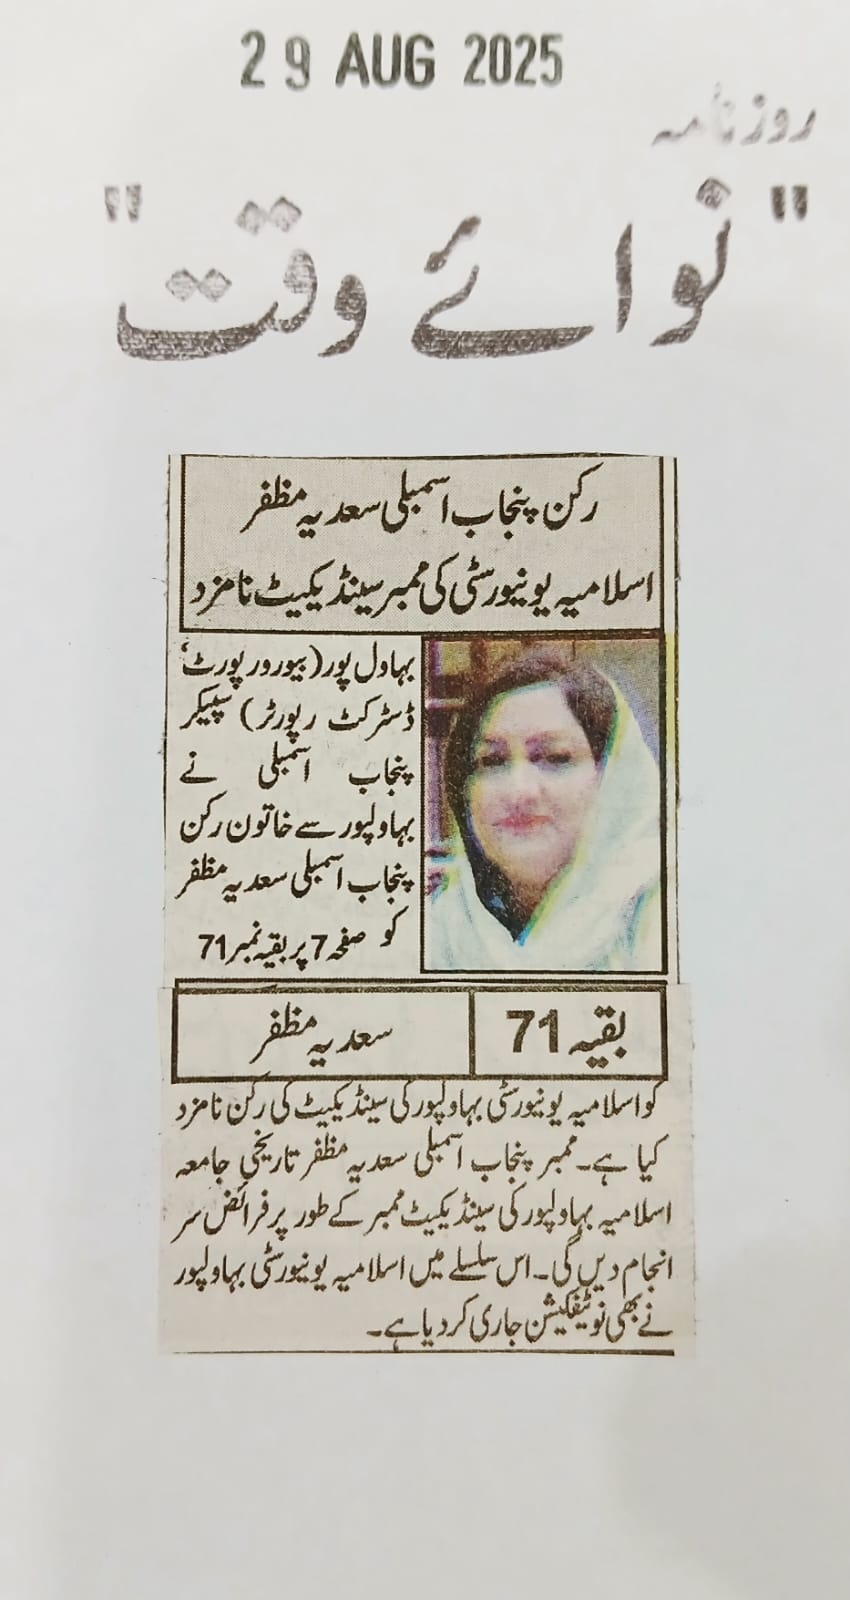 29 AUG 2025
روزنامہ
"نوائے وقت"
رکن پنجاب اسمبلی سعدیہ مظفر
اسلامیہ یونیورسٹی کی ممبر سینڈیکیٹ نامزد
بہاول پور (بیورورپورٹ‘
ڈسٹرکٹ رپورٹر) سپیکر
پنجاب اسمبلی نے
بہاولپور سے خاتون رکن
پنجاب اسمبلی سعدیہ مظفر
کو صفحہ 7 پر بقیہ نمبر 71
بقیہ 71 سعدیہ مظفر
کو اسلامیہ یونیورسٹی بہاولپور کی سینڈیکیٹ کی رکن نامزد
کیا ہے۔ ممبر پنجاب اسمبلی سعدیہ مظفر تاریخی جامعہ
اسلامیہ بہاولپور کی سینڈیکیٹ ممبر کے طور پر فرائض سر
انجام دیں گی۔ اس سلسلے میں اسلامیہ یونیورسٹی بہاولپور
نے بھی نوٹیفکیشن جاری کر دیا ہے۔